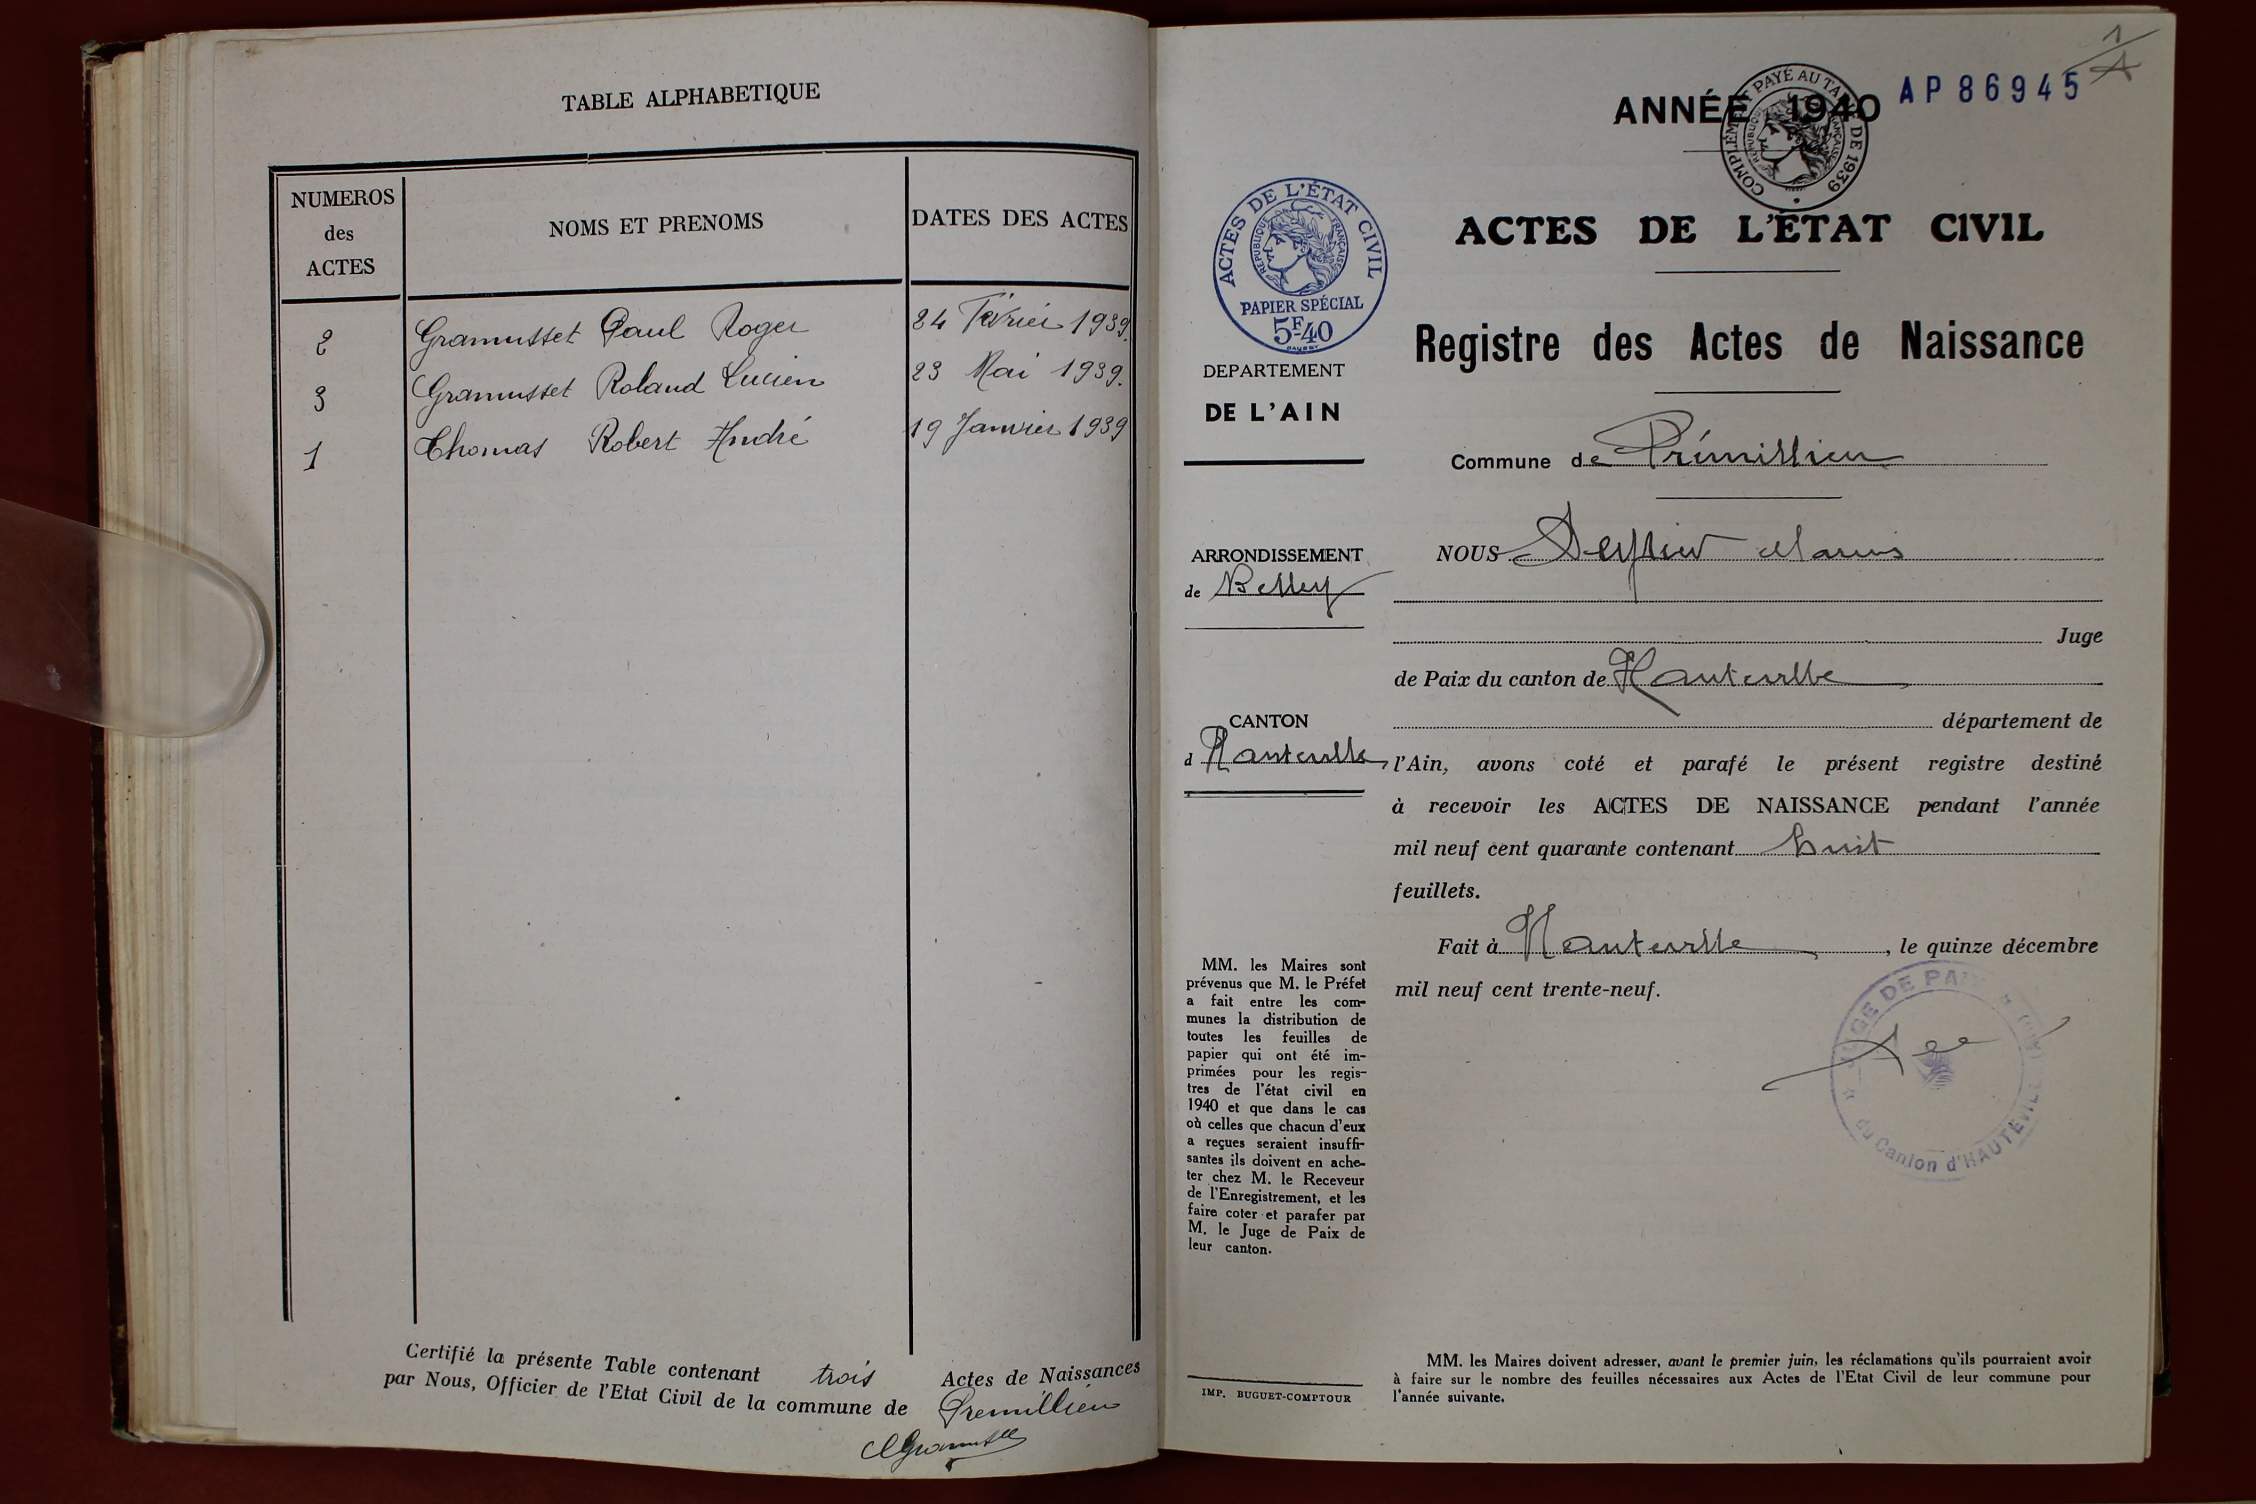 TABLE ALPHABETIQUE
NUMEROS
des
ACTES
NOMS ET PRENOMS
DATES DES ACTES
2 Gramusset Paul Roger 24 Février 1939.
3 Gramusset Roland Lucien 23 Mai 1939.
1 Thomas Robert André 19 Janvier 1939
Certifié la présente Table contenant trois Actes de Naissances
par Nous, Officier de l'Etat Civil de la commune de Prémillieu
1
AP86945
ANNÉE 1940
COMPLÉMENT PAYÉ AU TARIF DE 1939
RÉPUBLIQUE FRANÇAISE
ACTES DE L'ÉTAT CIVIL
RÉPUBLIQUE FRANÇAISE
PAPIER SPÉCIAL
5F40
DEPARTEMENT
DE L'AIN
ARRONDISSEMENT
de Belley
CANTON
d'Hauteville
MM. les Maires sont
prévenus que M. le Préfet
a fait entre les com-
munes la distribution de
toutes les feuilles de
papier qui ont été im-
primées pour les regis-
tres de l'état civil en
1940 et que dans le cas
où celles que chacun d'eux
a reçues seraient insuffi-
santes ils doivent en ache-
ter chez M. le Receveur
de l'Enregistrement, et les
faire coter et parafer par
M. le Juge de Paix de
leur canton.
IMP. BUGUET-COMPTOUR
ACTES DE L'ÉTAT CIVIL
Registre des Actes de Naissance
Commune de Prémillieu
NOUS Marius
Juge
de Paix du canton de Hauteville
département de
l'Ain, avons coté et parafé le présent registre destiné
à recevoir les ACTES DE NAISSANCE pendant l'année
mil neuf cent quarante contenant huit
feuillets.
Fait à Hauteville, le quinze décembre
mil neuf cent trente-neuf.
JUGE DE PAIX
du Canton d'HAUTEVILLE
MM. les Maires doivent adresser, avant le premier juin, les réclamations qu'ils pourraient avoir
à faire sur le nombre des feuilles nécessaires aux Actes de l'Etat Civil de leur commune pour
l'année suivante.